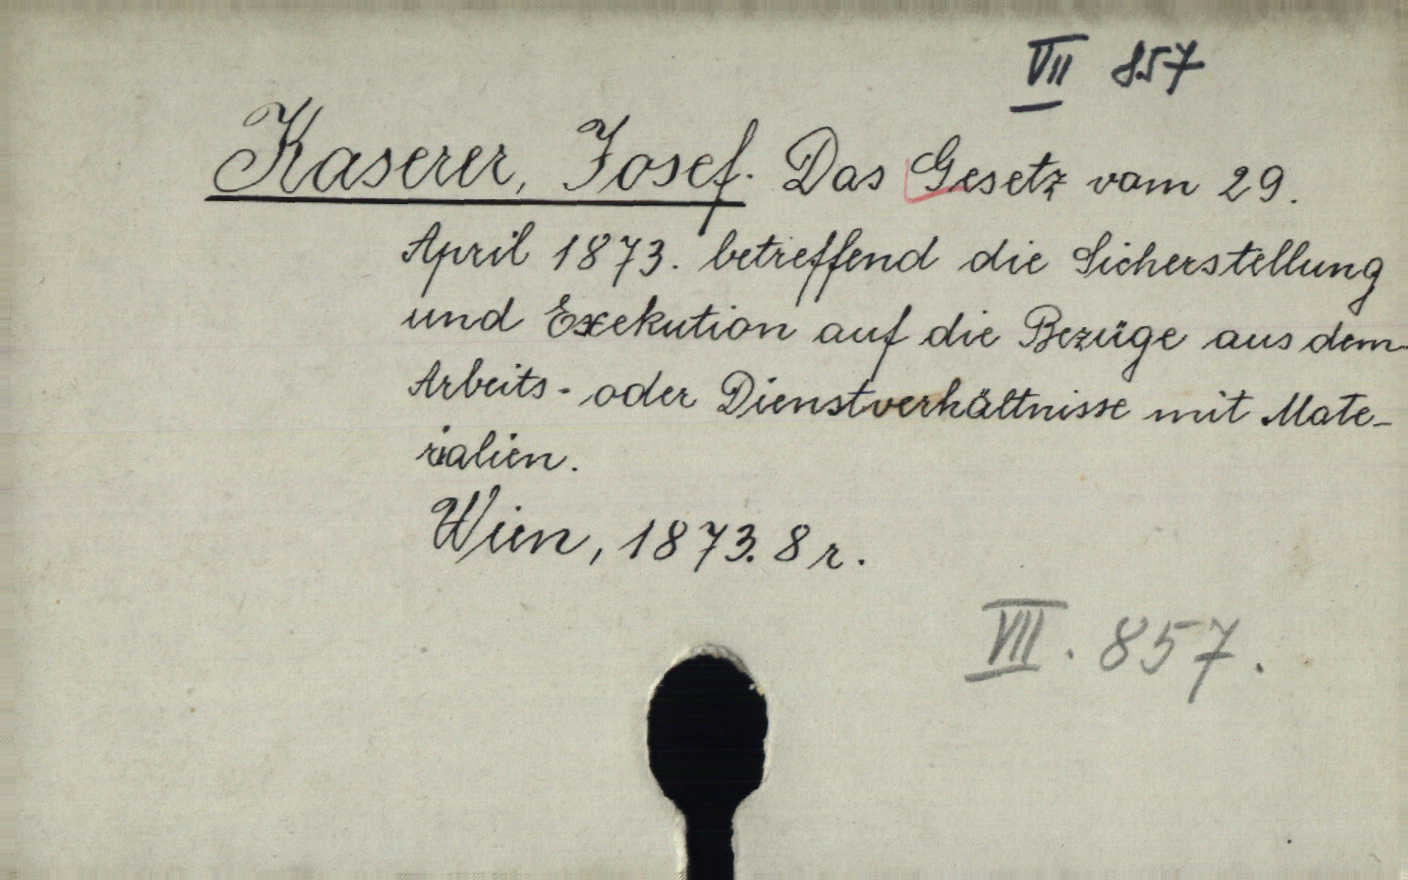 VII 857
Kaserer, Josef. Das Gesetz vom 29.
April 1873. betreffend die Sicherstellung
und Exekution auf die Bezüge aus dem
Arbeits- oder Dienstverhältnisse mit Mate-
rialien.
Wien, 1873. 8 r.
VII. 857.